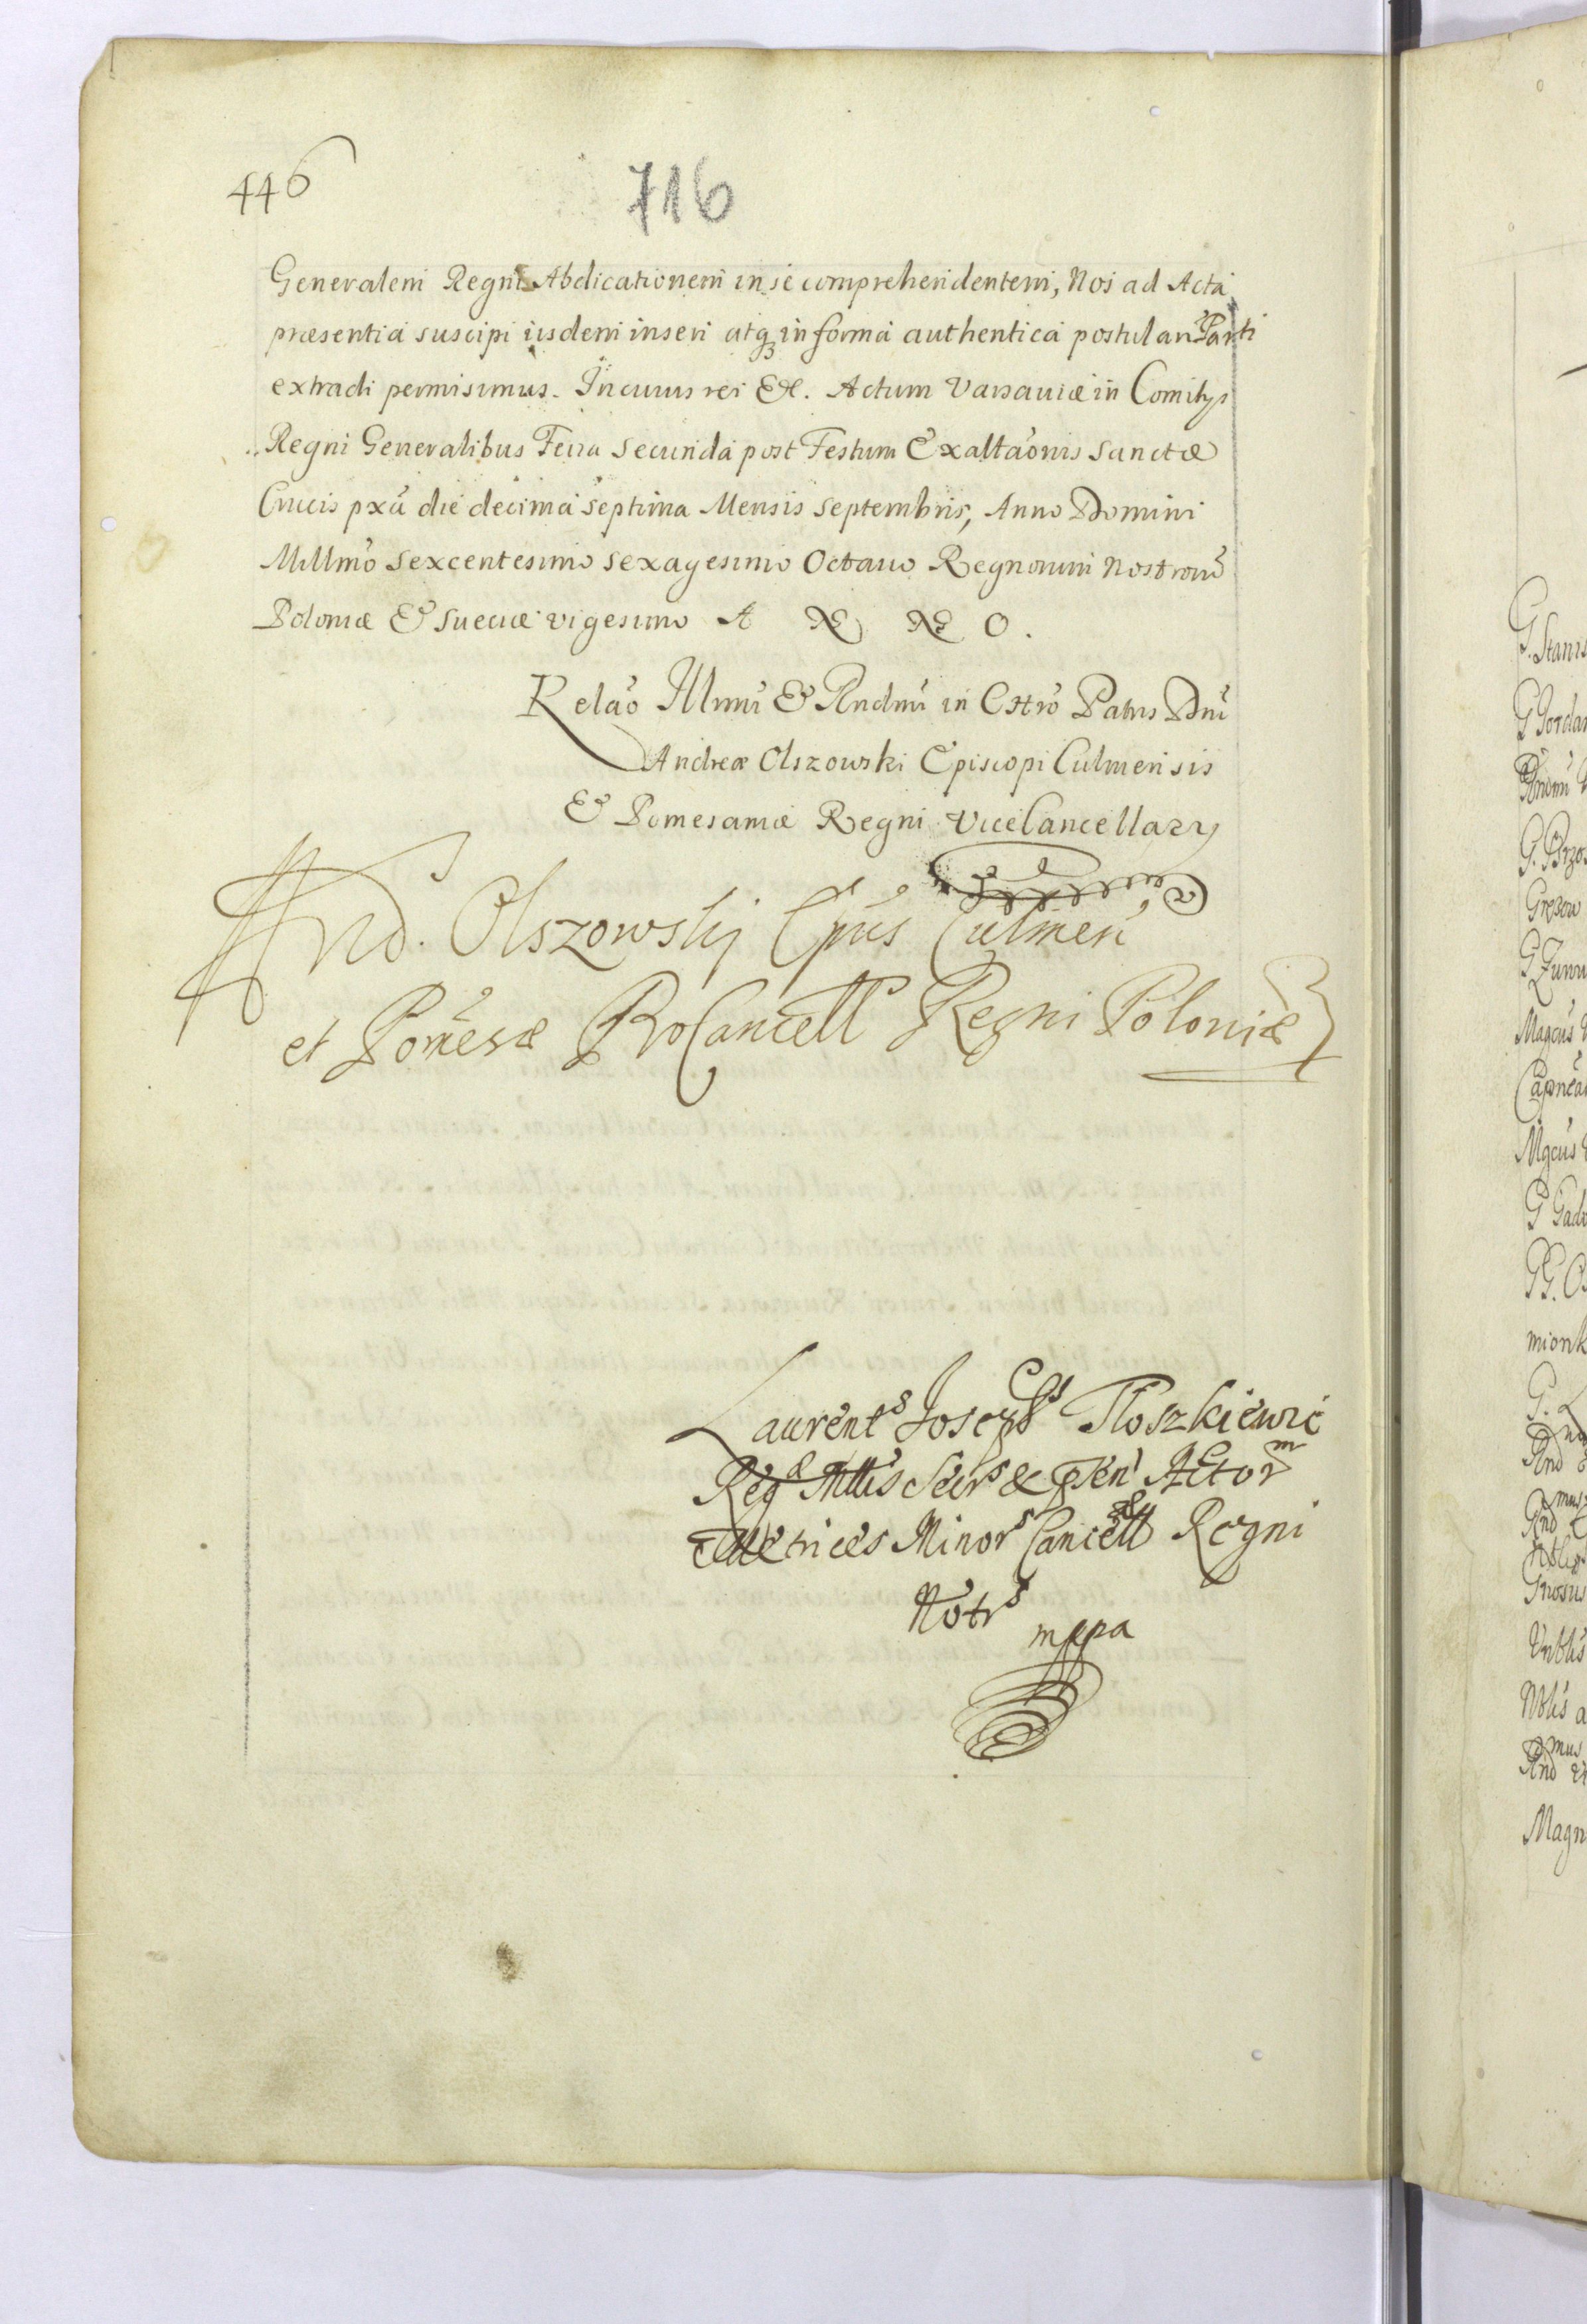 446
716
Generalem Regni Abdicationem in se comprehendentem, Nos ad Acta
præsentia suscipi iisdem inseri atq₃ in forma authentica postulan Parti
extradi permisimus. In cuius rei Et. Actum Varsauiæ in Comitys
Regni Generalibus Feria Secunda post Festum Exaltãonis Sanctæ
Crucis pxũ die decima septima Mensis Septembris, Anno Domini
Millmo Sexcentesimo Sexagesimo Octauo Regnorum Nostrorũ
Poloniæ & Sueciæ vigesimo A O.
Relão Illmi & Rndmi in Chro Patris Dni
Andreæ Olszowski Episcopi Culmensis
& Pomesaniæ Regni ViceCancellary
And. Olszowskj Epũs Culmeñ
et Pomesæ ProCancell Regni Poloniæ
Laurents Josephs Ploszkiewic
Reg Mttis Secrs & pSen Actorm
Metrices Minors Cancell Regni
Notrs
mppa
G. Stanis
G Jordan
Rndmi
G. Brzo
G
Magcus
Mgcus
G Gad
GG.
mionk
G.
Rnd
Vrblis
Nblis a
Rnd
Magn